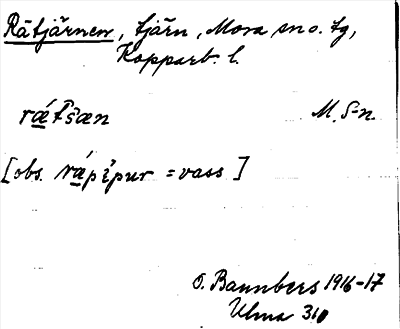 Rätjärnen, tjärn, Mora sn o. tg,
Kopparb. l.
rǽtšæn M. S-n.
[obs. rǽpipur = vass]
O. Bannbers 1916-17
Ulma 310